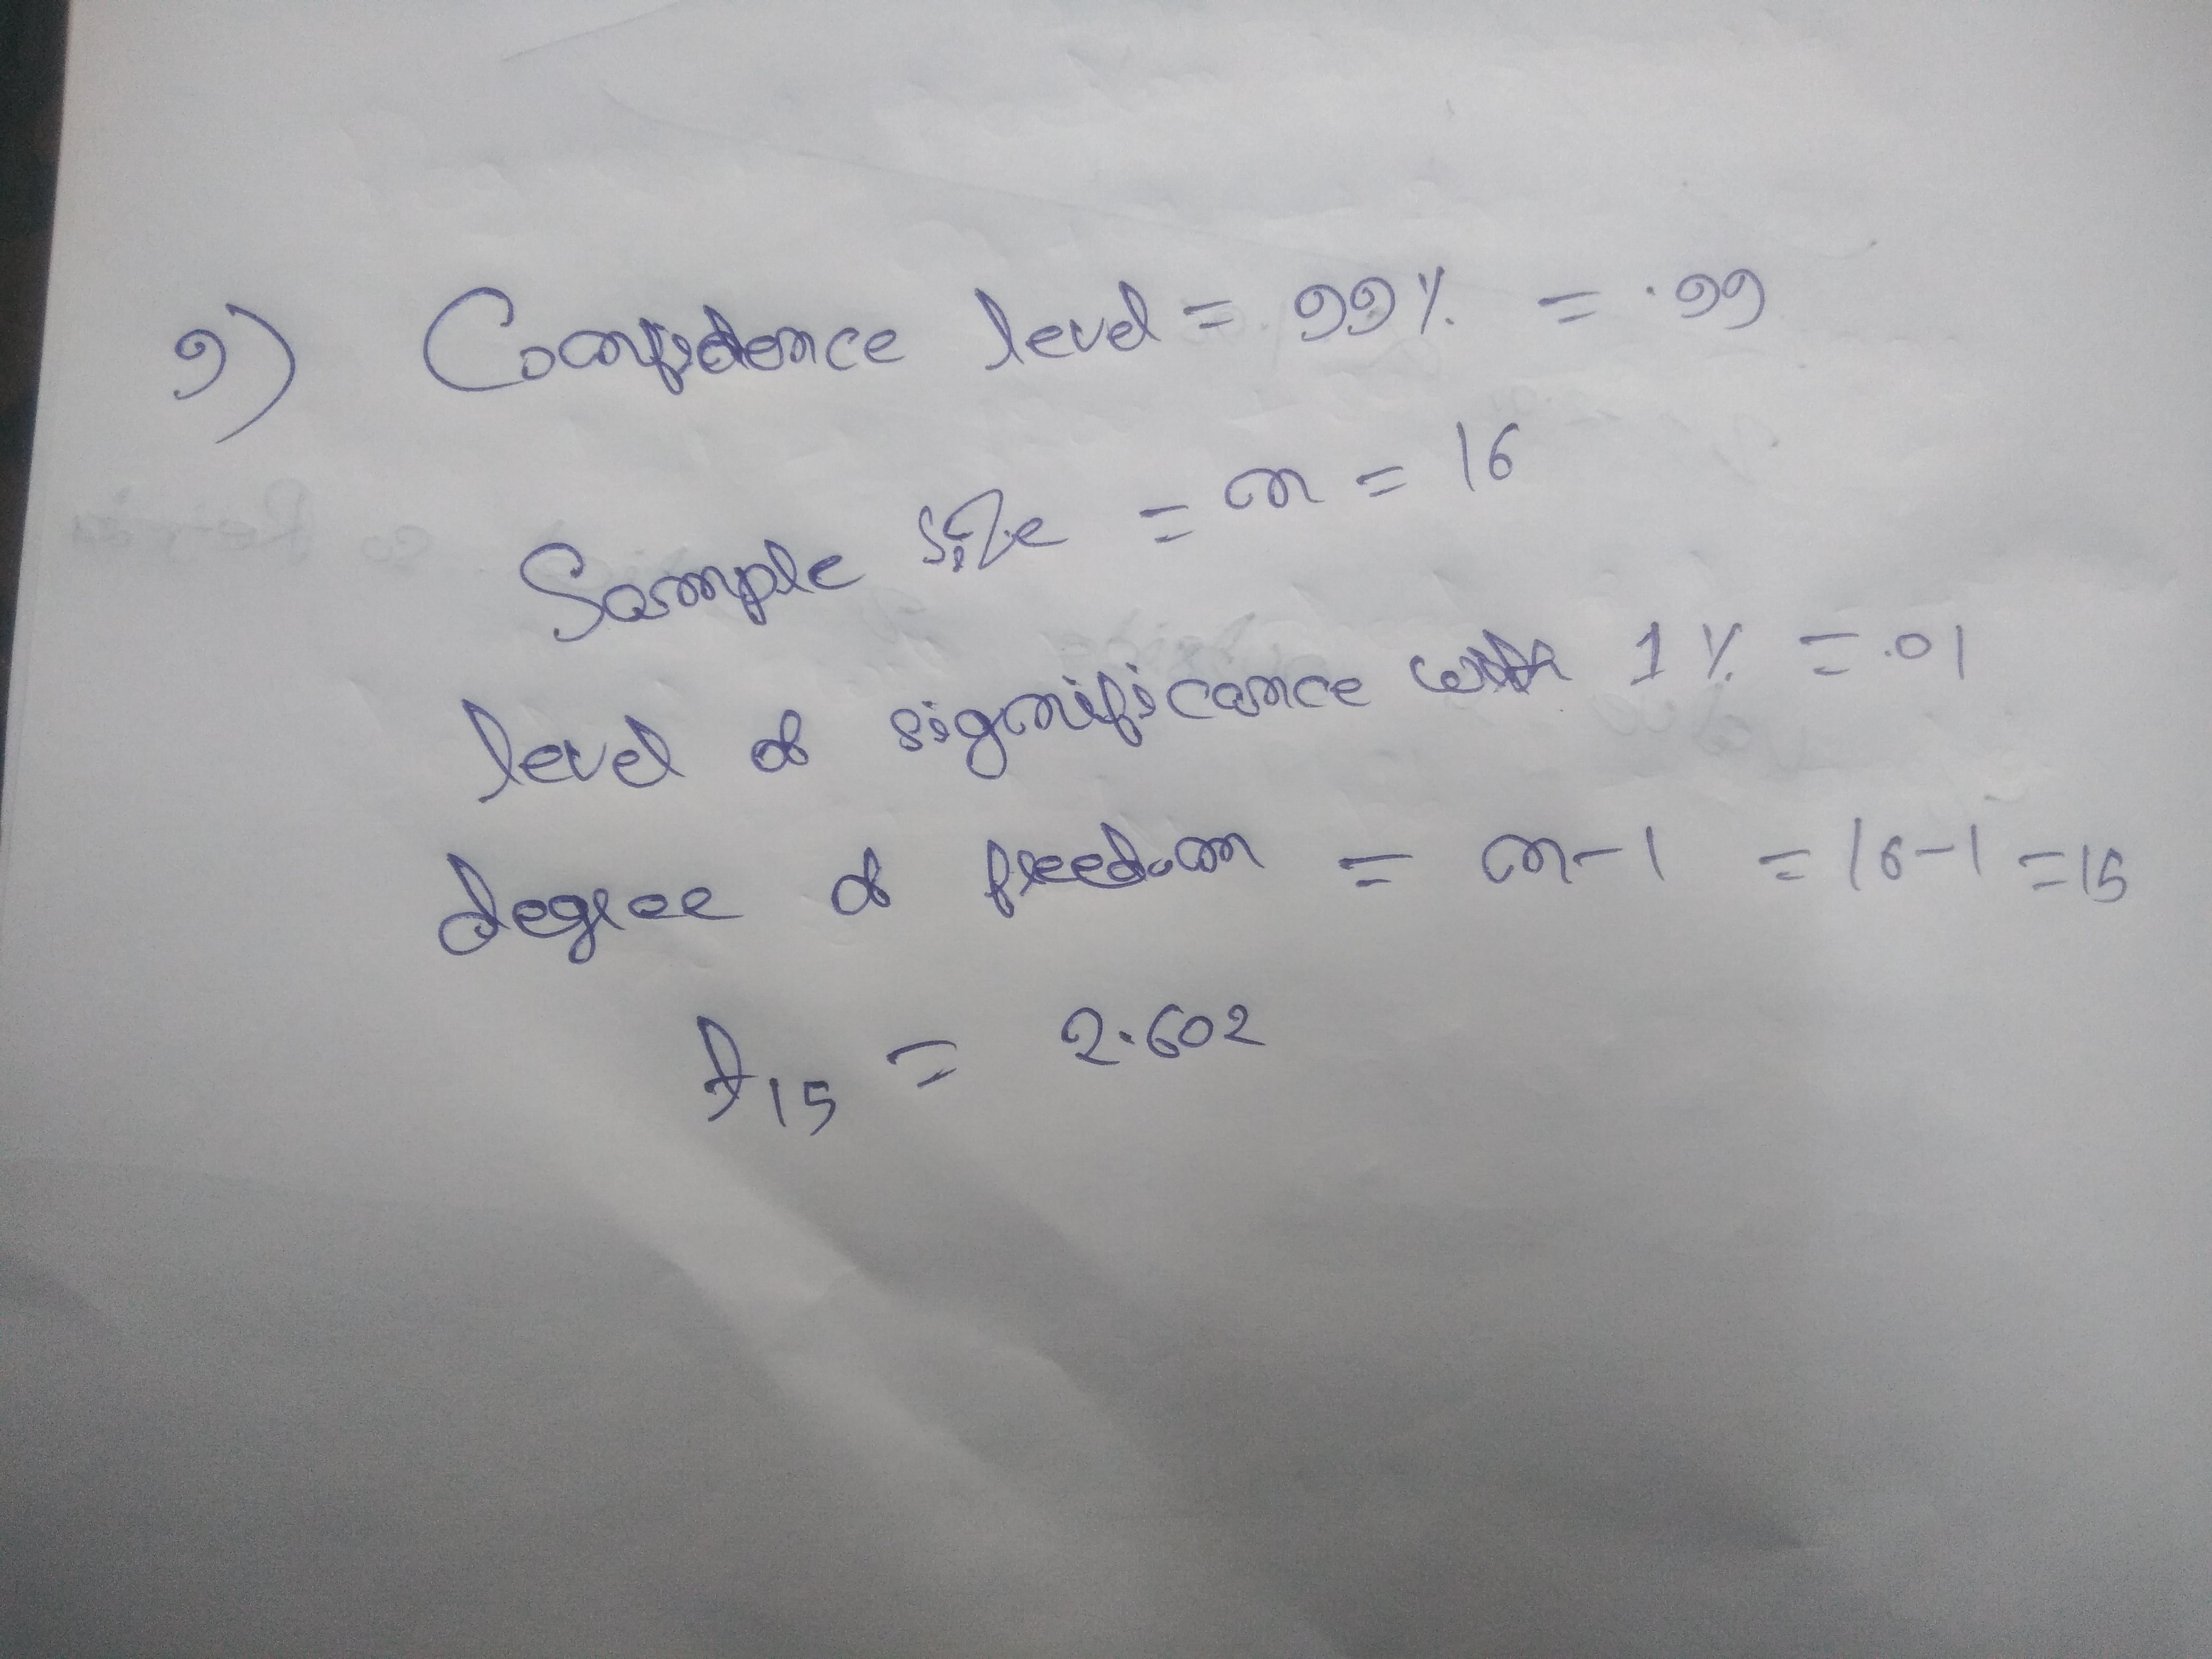 9) Confidence level = 99% = .99
Sample size = n = 16
level of significance with 1% = .01
degree of freedom = n-1 = 16-1 = 15
t15 = 2.602